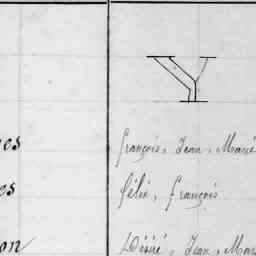 Y
es François, Jean, Marie
es Félix, François
on Désiré, Jean, Mar